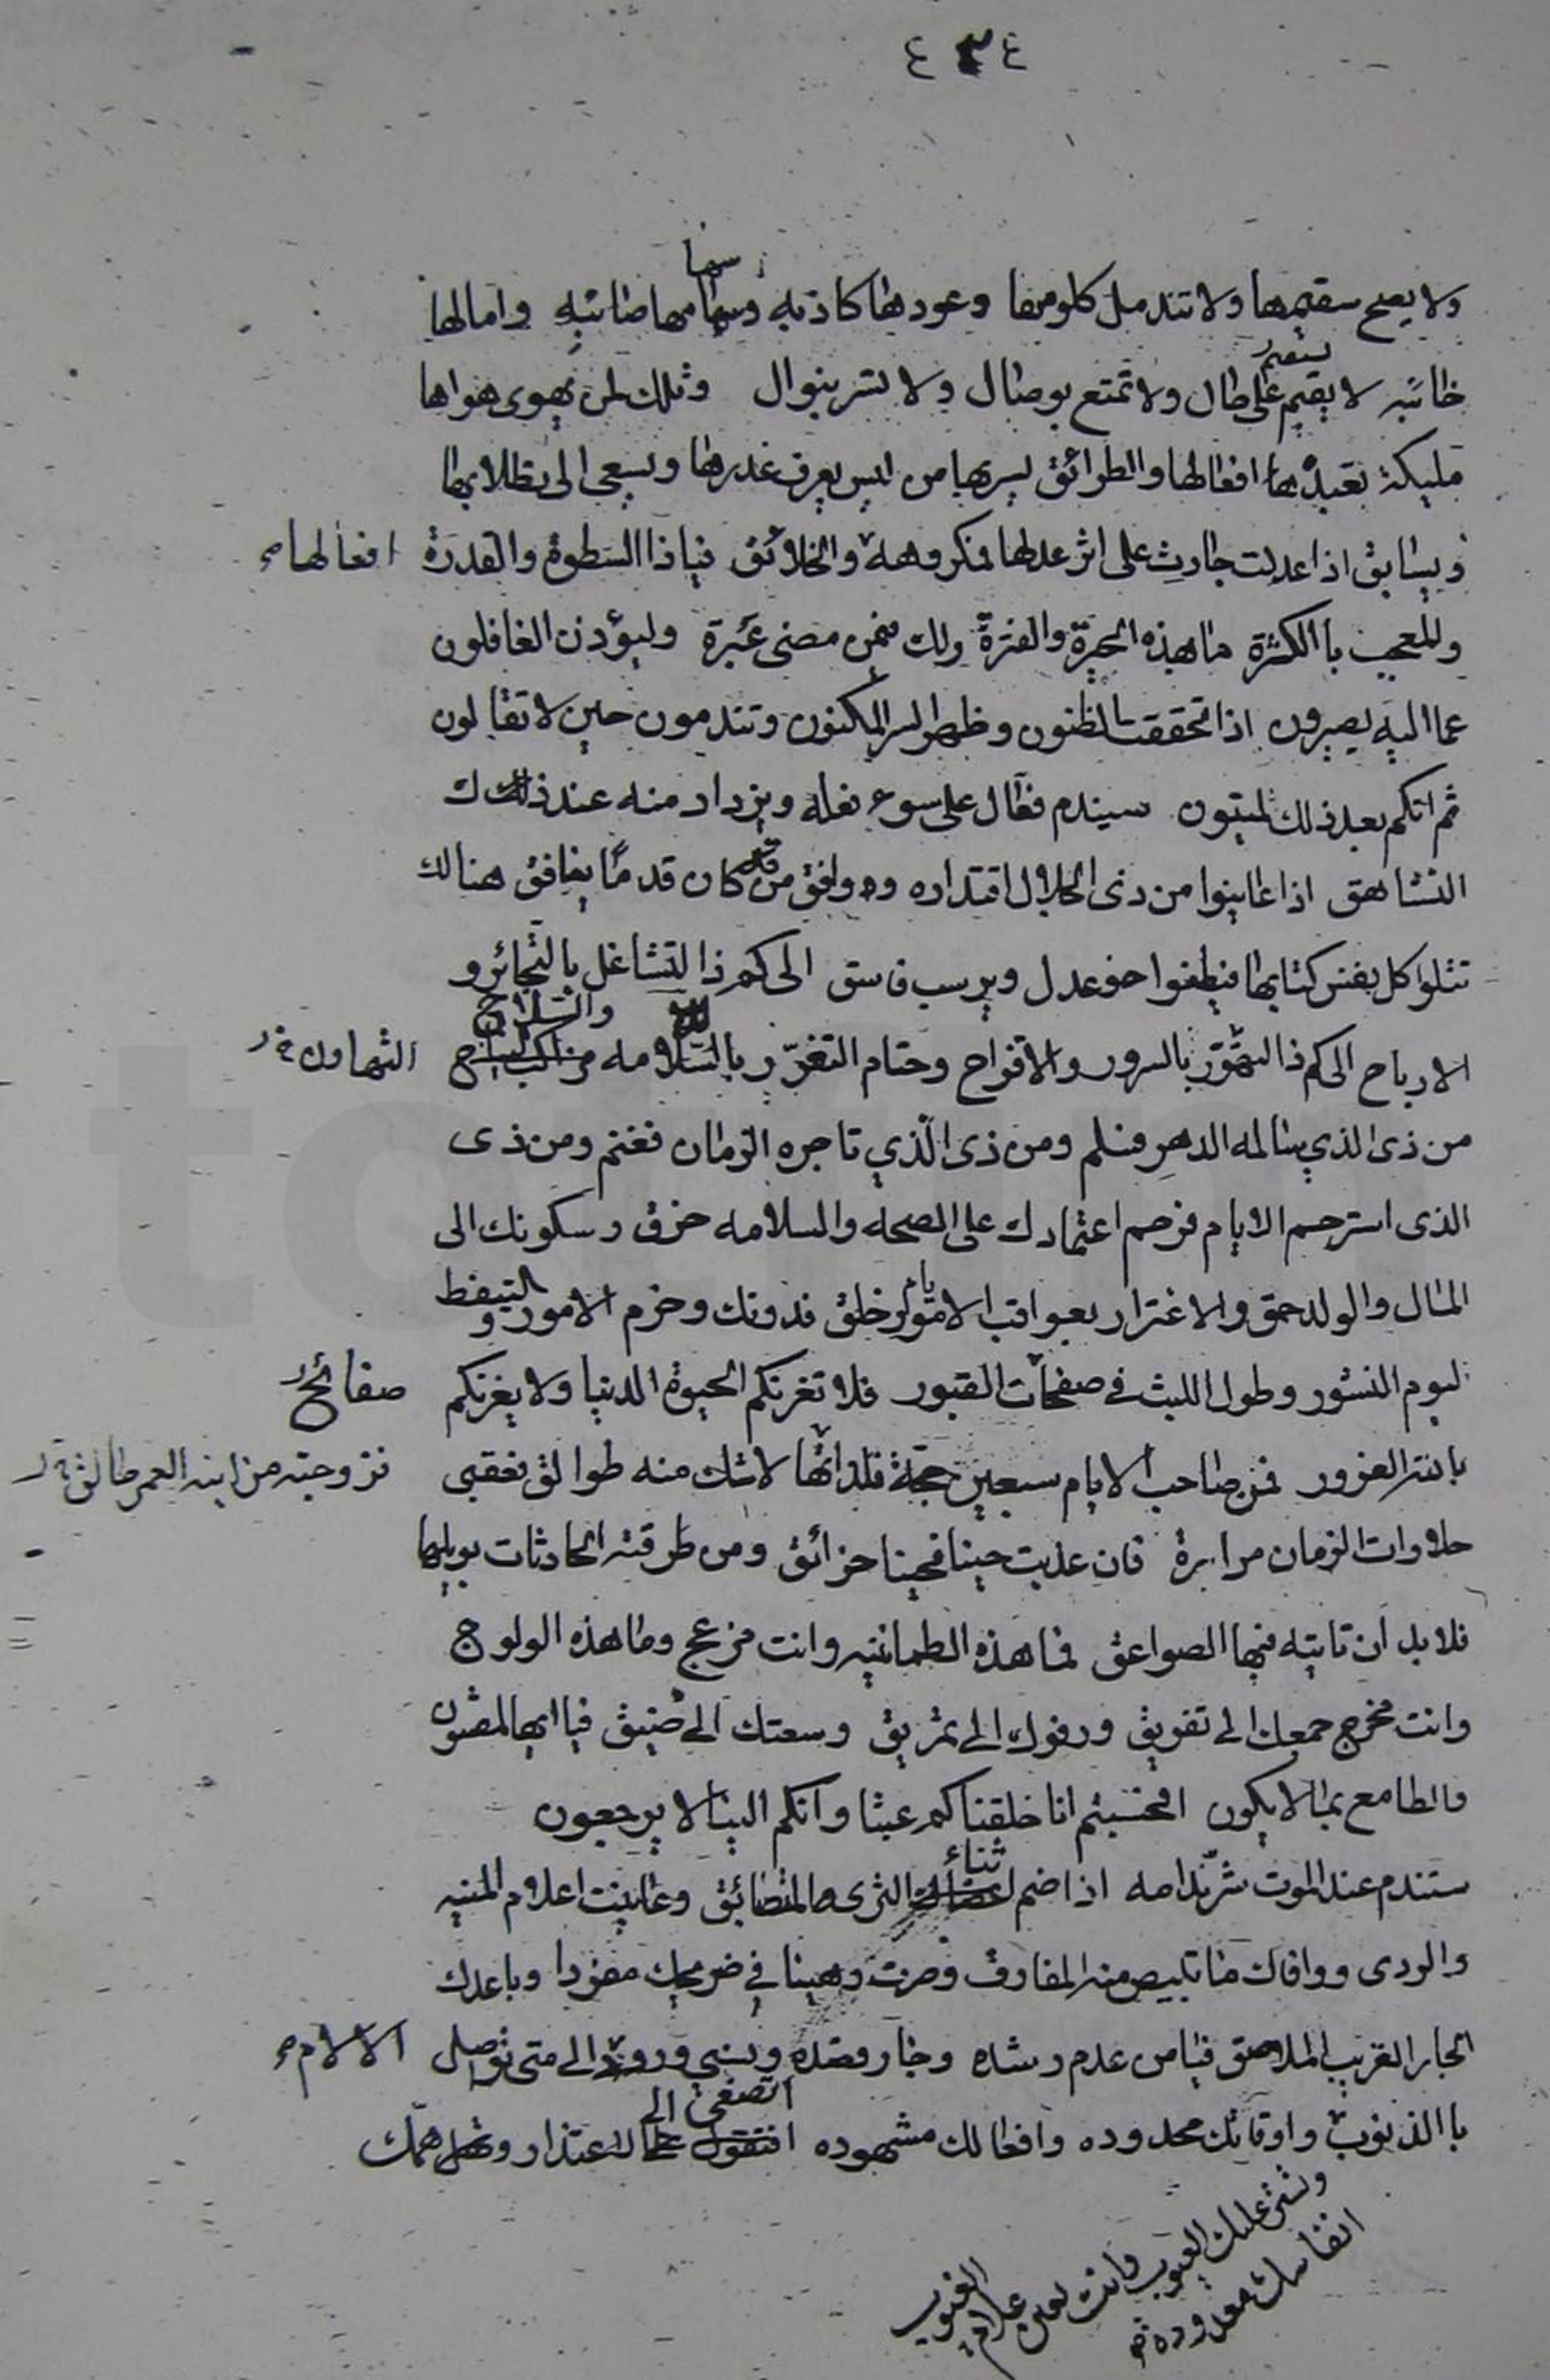 ٤٣٤
سهما
ولا يصح سقيمها ولا تندمل كلومها وعودها كاذبه وسهامها صائبه وامالها
تستقيم
خائبه لا يقيم على حال ولا تمتع بوصال ولا تسر بنوال وتلك لمن يهوى هواها
مليكة تعبده افعالها والطرائق يسر بها من ليس يعرف غدرها ويسعى الى تطلابها
ويسابق اذا عدلت جارت على اثر عدلها فمكروهه والخلائق فيا ذا السطوة والقدرة افعالها
وللمعجب با الكثرة ما هذه الحيرة والفترة ولك فيمن مضى عبرة وليؤذن الغافلون
عما اليه يصيرون اذا تحققت الظنون وظهر السر المكنون وتندمون حين لا تقالون
ثم انكم بعد ذلك لميتون سيندم فعال على سوء فعله ويزداد منه عند ذلك
التشاهق اذا عاينوا من ذى الجلال اقتداره وذو وافق من قد كان قدما ينافق هنالك
تتلوا كل نفس كتابها فيطفوا حو عدل ويرسب فاسق الى كم ذا التشاغل بالتجائر و
والتلاح
الارباح الى كم ذا التهور بالسرور والافراح وحتام التغرر بالسلامه مراكب النياح التهاون
من ذى الذي سالمه الدهر فسلم ومن ذى الذي تاجره الزمان فغنم ومن ذى
الذى استرحم الايام فرحم اعتمادك على الصحه والسلامه خرق وسكونك الى
المال والولد حمق والاغترار بعواقب الامور خلق فدونك وحزم الامور والتيقظ
ليوم النشور وطول اللبث في صفحات القبور فلا تغرنكم الحيوة الدنيا ولا يغرنكم صفائح
بالله الغرور فمن صاحب الايام سبعين حجة فلذاتها لا شك منه طوالق فعقبى فزوجته من ابنه العمر طالق
حلاوات الزمان مرايرة فان عذبت حينا فحينا خرائق ومن طرقته الحادثات بويلها
فلا بد ان تاتيه فيها الصواعق فما هذه الطمانينه وانت مزعج وما هذه الولوج
وانت مخرج جمعك الى تفريق ورفوك الى تمزيق وسعتك الى ضيق فيا ايها المفتون
والطامع بما لا يكون افحسبتم انا خلقناكم عبثا وانكم الينا لا يرجعون
ثناء
ستندم عند الموت شر ندامه اذا ضم الثرى المتضائق وعاينت اعلام المنيه
والردى ووافاك ما تبيض منه المفارق وصرت رهينا في ضريحك مفردا وباعدك
الجار القريب الملاصق فيا من عدم رشده وجار قصده ونسي وروده الى متى تواصل الالام
اتصغى الى
با الذنوب واوقاتك محدوده وافعالك مشهوده افتقول على الاعتذار وتهمل همك
وتستر عليك العيوب وانت بعين علام الغيوب
انفاسك معدوده